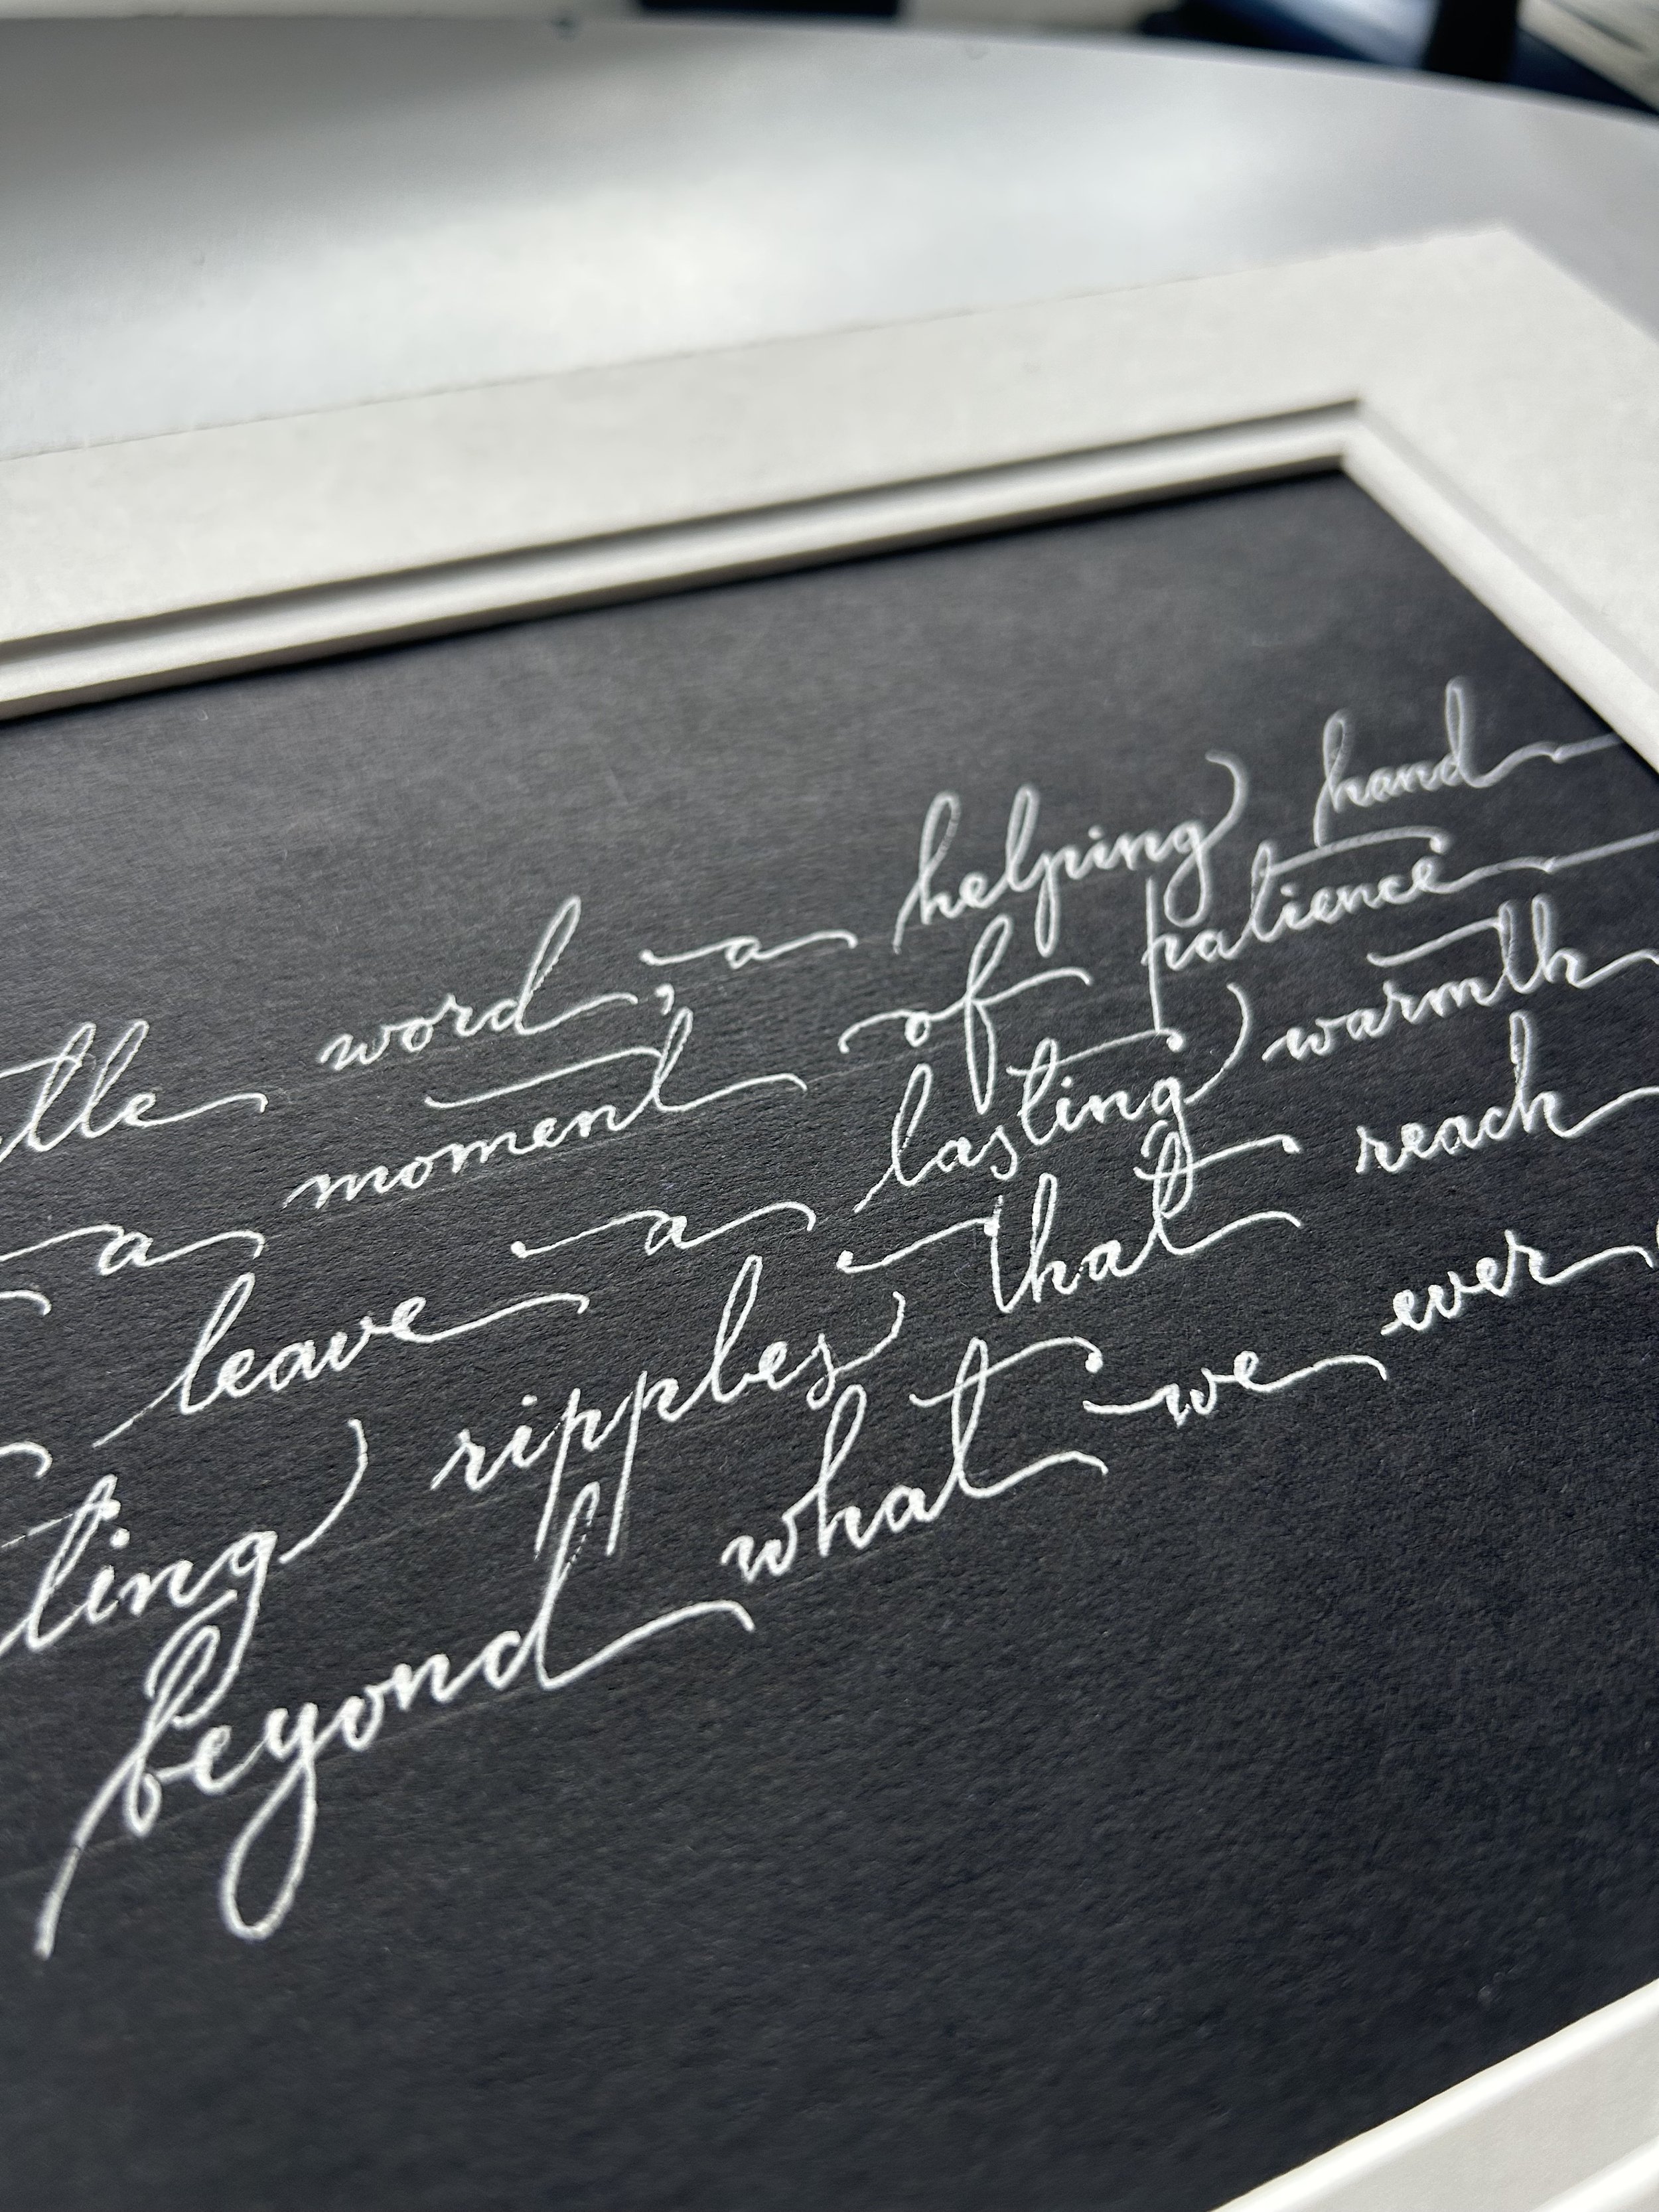 tle word, a helping hand
a moment of patience
leave a lasting warmth
ting ripples that reach
beyond what we ever